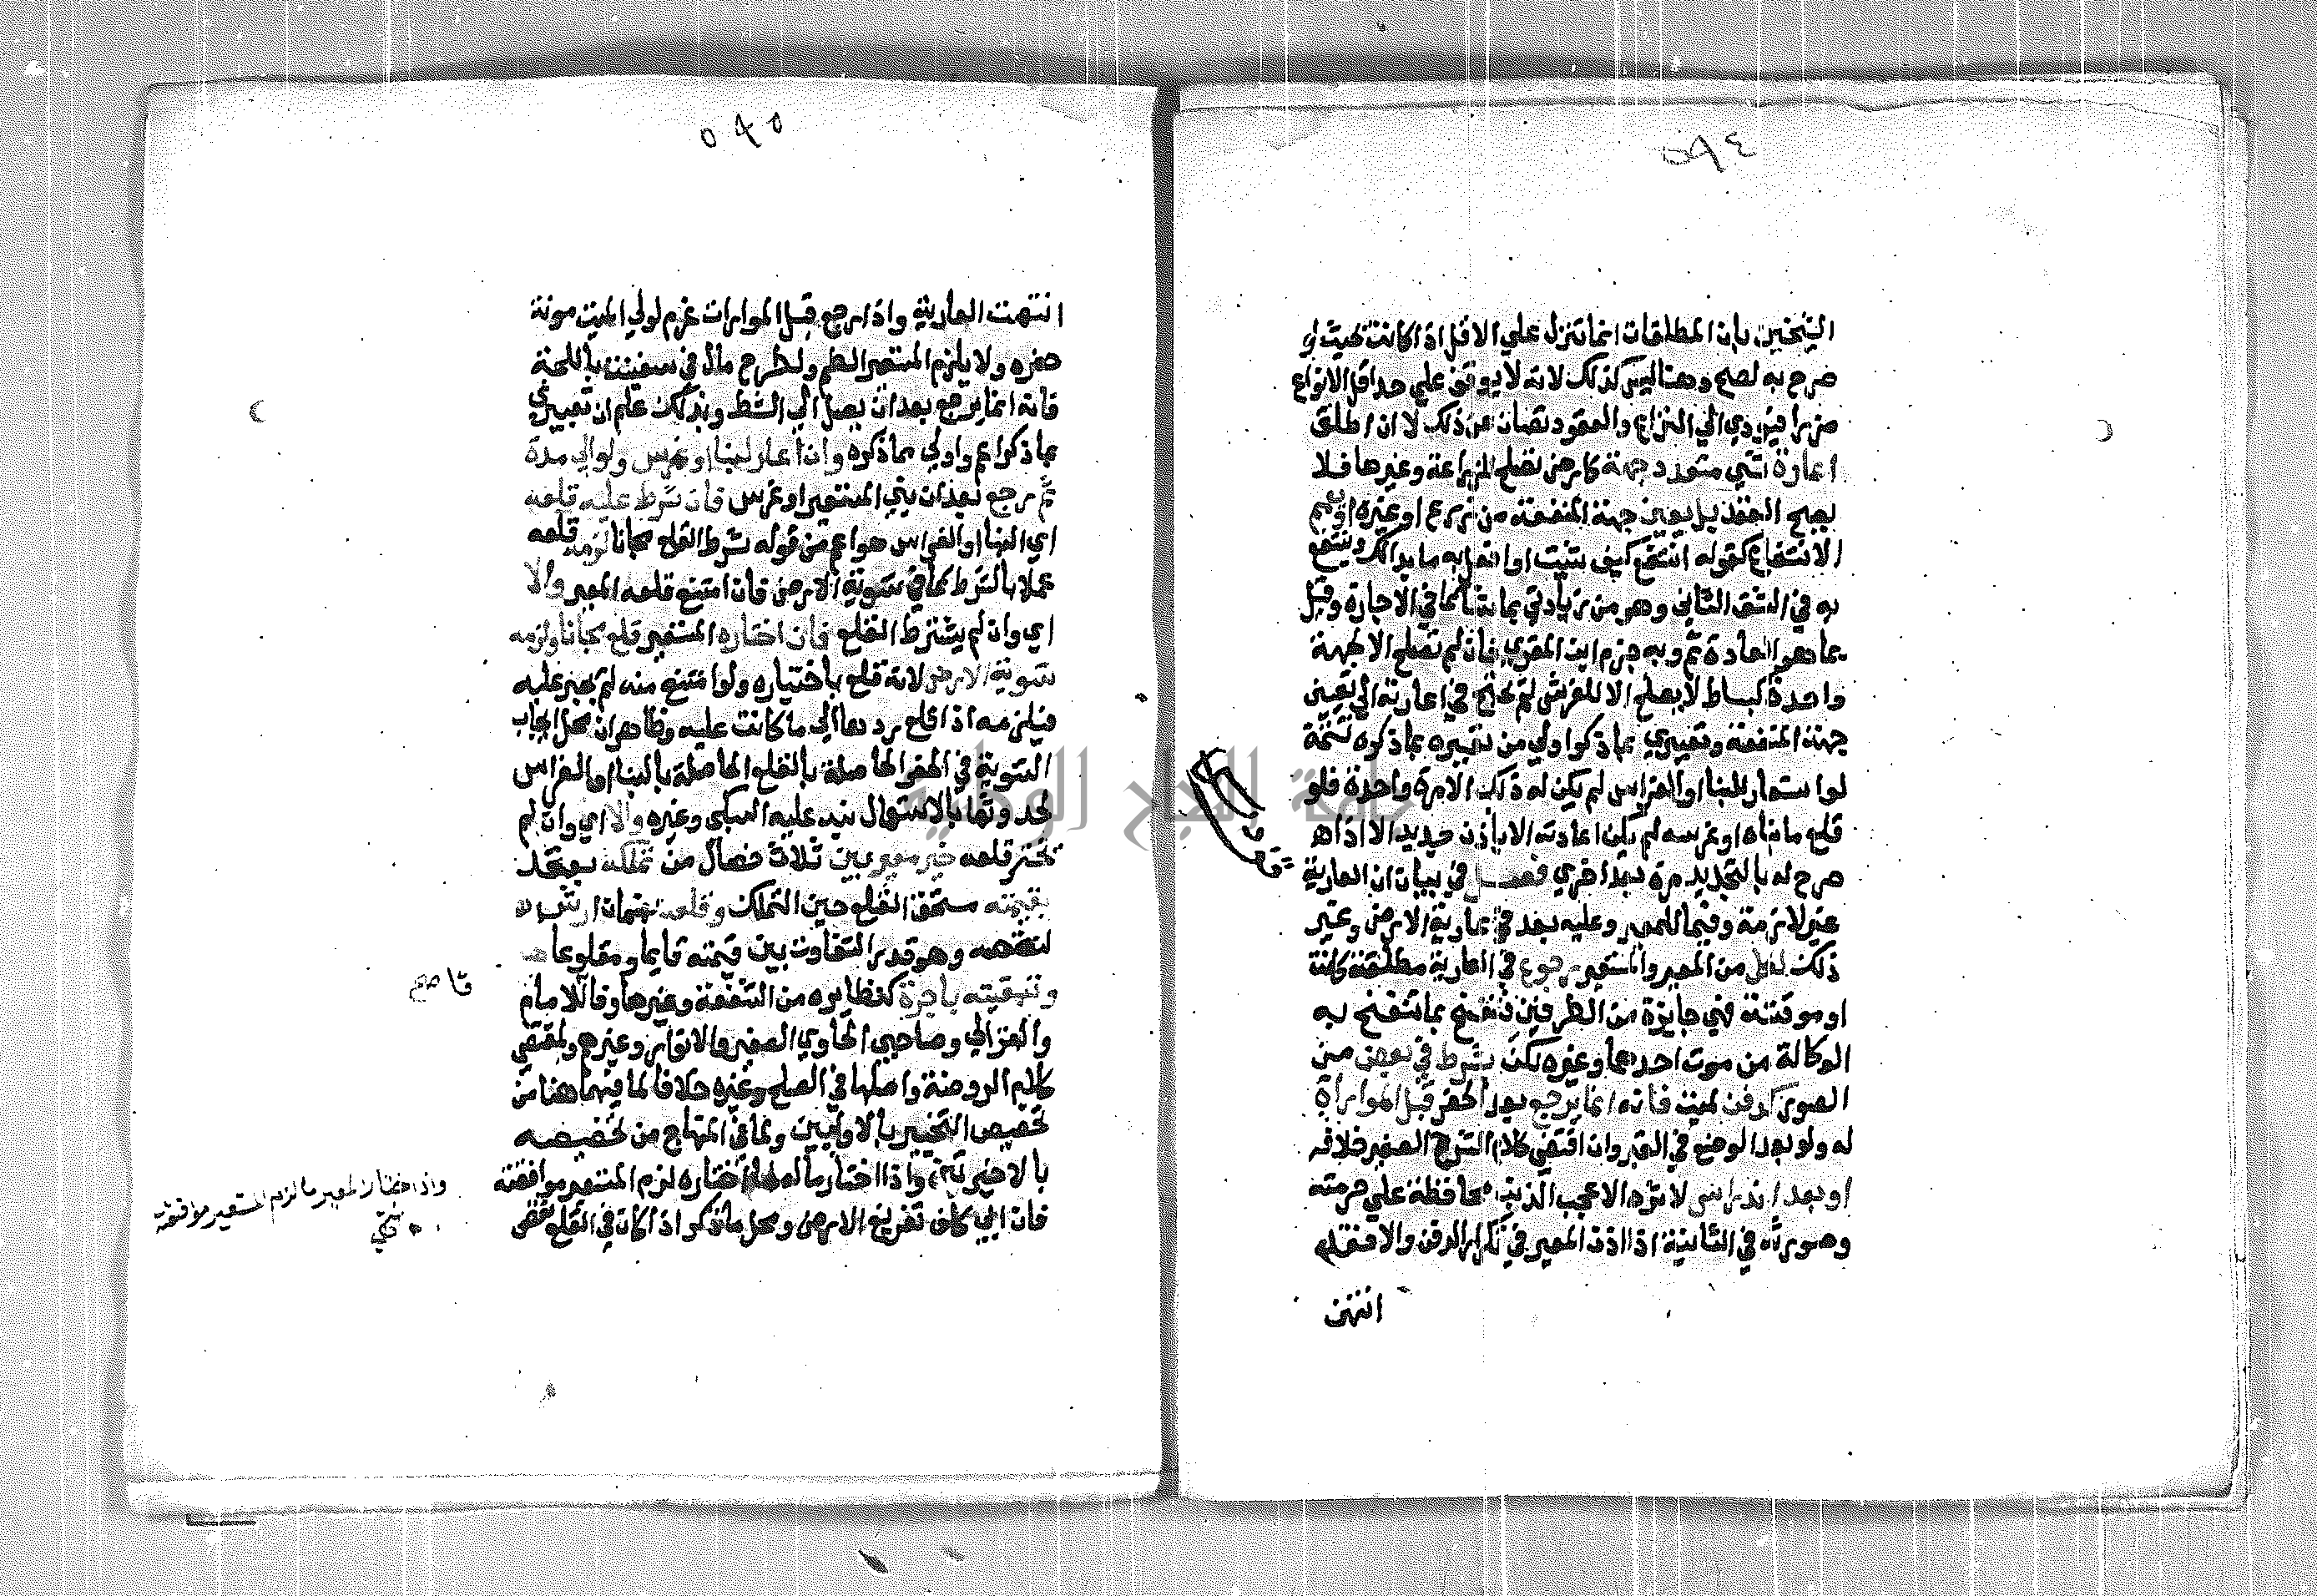 ٥٩٤
الشيخين بان المطلقات انما تنزل علي الاقل اذا كانت بحيث لو
صرح به لصح وهنا ليس كذلك لانه لا يوقف علي حد اقل الانواع
ضررا فيؤدي الي النزاع والعقود تصان عن ذلك لا ان اطلق
اعارة شي متعدد جهة كارض تصلح للزراعة وغيرها فلا
يصح العقد بل يعين جهة المنفعة من زرع او غيره او يعم
الانتفاع كقوله انتفع كيف شئت او افعل به ما بدا لك وينتفع
به في الشق الثاني وهو من زيادتي بما شا كما في الاجارة وقيل
بما هو العادة ثم وبه جزم ابن المقري فان لم تصلح الا لجهة
واحدة كبساط لا يصلح الا للفرش لم يحتج في اعارته الي تعيين
جهة المنفعة وتعبيري بما ذكر اولي من تعبيره بما ذكره تتمة
لو استعار للبنا او الغراس لم يكن له ذلك الا مرة واحدة فلو
قلع ما بناه او غرسه لم يكن اعادته الا باذن جديد الا اذا
صرح له بالتجديد مرة بعد اخري فصل في بيان ان العارية
غير لازمة وفيما للمعير وعليه بعد في عارية الارض وغير
ذلك لكل من المعير والمستعير رجوع في العارية مطلقة كانت
او موقتة فهي جايزة من الطرفين فتنفسخ بما تنفسخ به
الوكالة من موت احدهما وغيره لكن بشرط في بعض من
الصور كدفن لميت فانه انما يرجع بعد الحفر قبل المواراة
له ولو بعد الوضع في القبر وان اقتضي كلام الشرح الصغير خلافه
او بعد اندراس لاثره الا عجب الذنب محافظة علي حرمته
وصورته في الثانية اذا اذن المعير في تكرار الدفن والا فقد
انتهت
٥٩٥
انتهت العارية واذا رجع قبل المواراة غرم لولي الميت مونة
حفره ولا يلزم المستعير الطم ولطرح مال في سفينة باللجة
فانه انما يرجع بعد ان يصل الي الشط وبذلك علم ان تعبيري
بما ذكر اعم واولي مما ذكره وان اعار لبنا او غرس ولو الي مدة
ثم رجع بعد ان بني المستعير او غرس فان شرط عليه قلعه
اي البنا او الغراس هو اعم من قوله شرط القلع مجانا لزمه قلعه
عملا بالشرط كما في تسوية الارض فان امتنع قلعه المعير والا
اي وان لم يشترط القلع فان اختاره المستعير قلع مجانا ولزمه
تسوية الارض لانه قلع باختياره ولو امتنع منه لم يجبر عليه
فيلزمه اذا قلع ردها الي ما كانت عليه وظاهر ان محل ايجاب
التسوية في الحفر الحاصلة بالقلع لا الحاصلة بالبنا او الغراس
لحدوثها بالاستعمال نبه عليه السبكي وغيره والا اي وان لم
يختر قلعه خير معير بين ثلاث خصال من تملكه بعقد
بقيمته مستحق القلع حين التملك وقلعه بضمان ارش
لنقصه وهو قدر التفاوت بين قيمته قايما ومقلوعا
وتبقيته باجرة كنظايره من الشفعة وغيرها وقال الامام
والغزالي وصاحبي الحاوي الصغير والانوار وغيرهم ولمقتضي
كلام الروضة واصلها في الصلح وغيره خلافا لما فيهما هنا من
تخصيص التخيير بالاوليين ولما في المنهاج من تخصيصه
بالاخيرتين واذا اختار ما له اختياره لزم المستعير موافقته
فان ابي كلف تفريغ الارض ومحل ما ذكر اذا كان في القلع نقص
واذا اختار المعير ما لزم المستعير موافقته